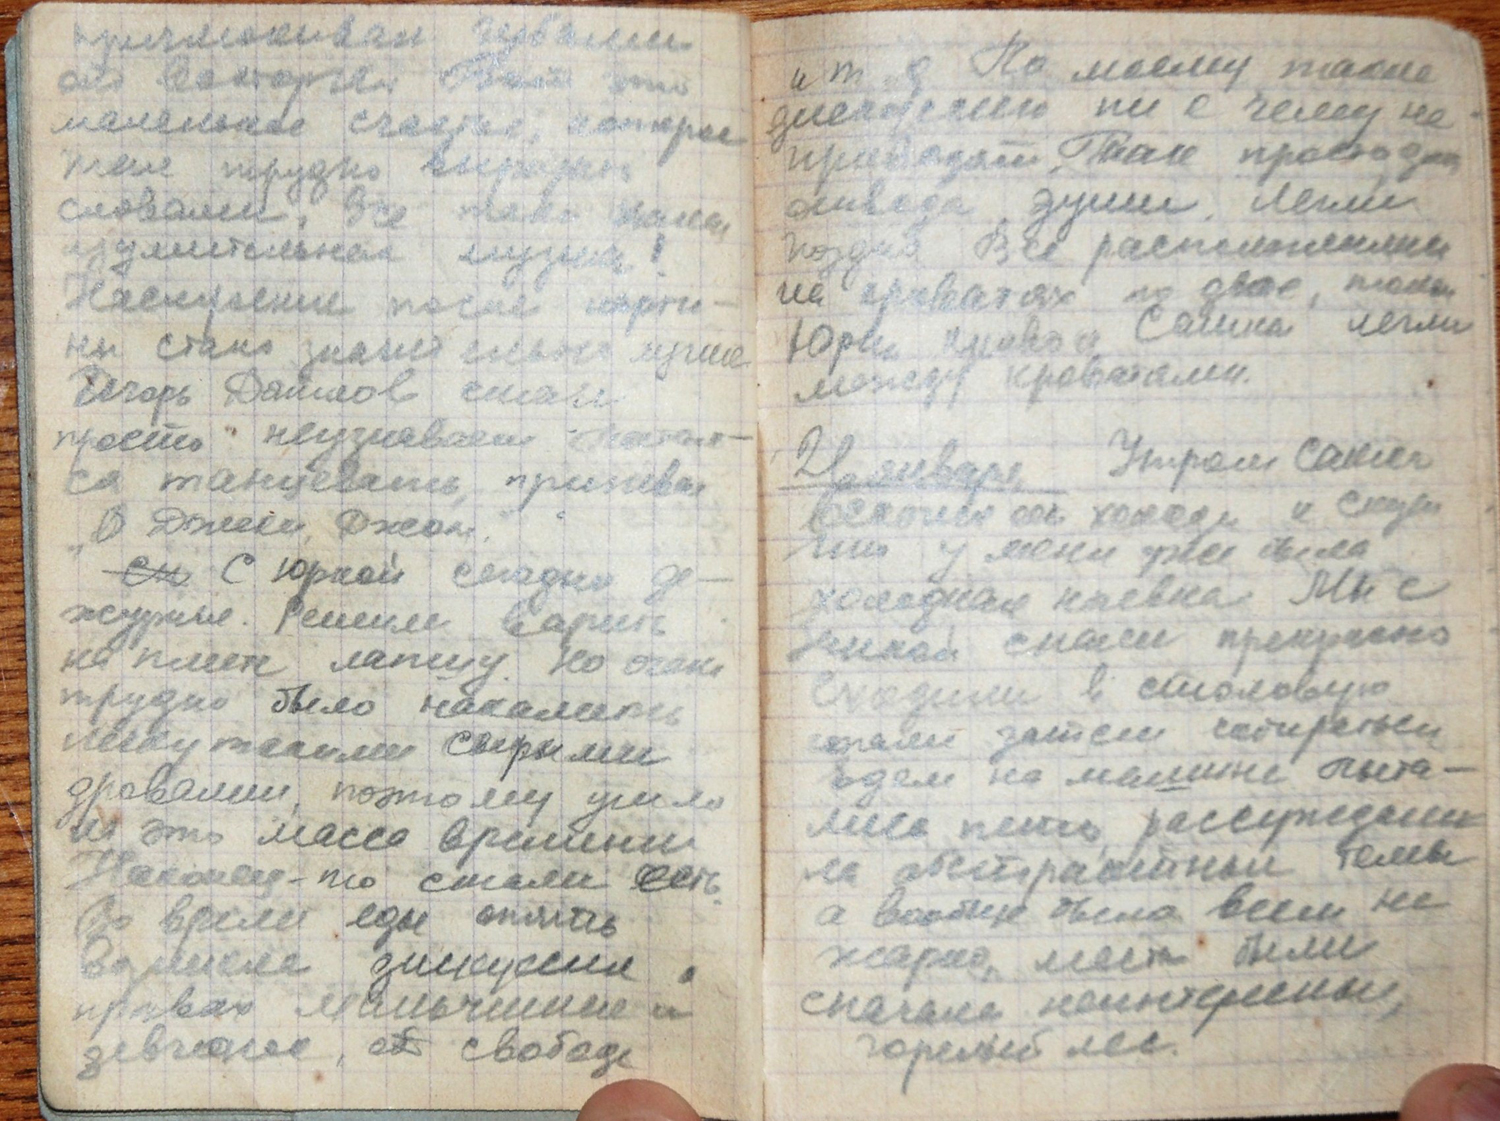 причмокивая губами
от восторга. Вот это
маленькое счастье, которое
так трудно выразить
словами, Все таки какая
изумительная музыка!
Настроение после карти-
ны стало значительно лучше
Игорь Данилов стал
просто неузнаваем пытал-
ся танцевать, припевая
„О Джеки, Джон."
С Юркой сегодня де-
журные. Решили варить
на плите лапшу. Но очень
трудно было накалить
печку такими сырыми
дровами, поэтому ушло
на это масса времени
Наконец-то стали есть.
Во время еды опять
возникла дискуссия о
правах мальчишек и
девчонок, об свободе
и т. д По моему такие
дискуссии ни к чему не
приводят. Так просто для
отвода души. Легли
поздно Все расположились
на кроватях по двое, только
Юрка и Сашка легли
между кроватями.
января Утром Сашка
вскочил от холода и
что у меня уже была
холодная Мы с
спали прекрасно
Сходили в столовую
стали затем собираться
едем на машине Пыта-
лись петь, рассуждали
на абстрактные темы
а вообще было всем не
жарко, места были
сначала неинтересные,
горелый лес.